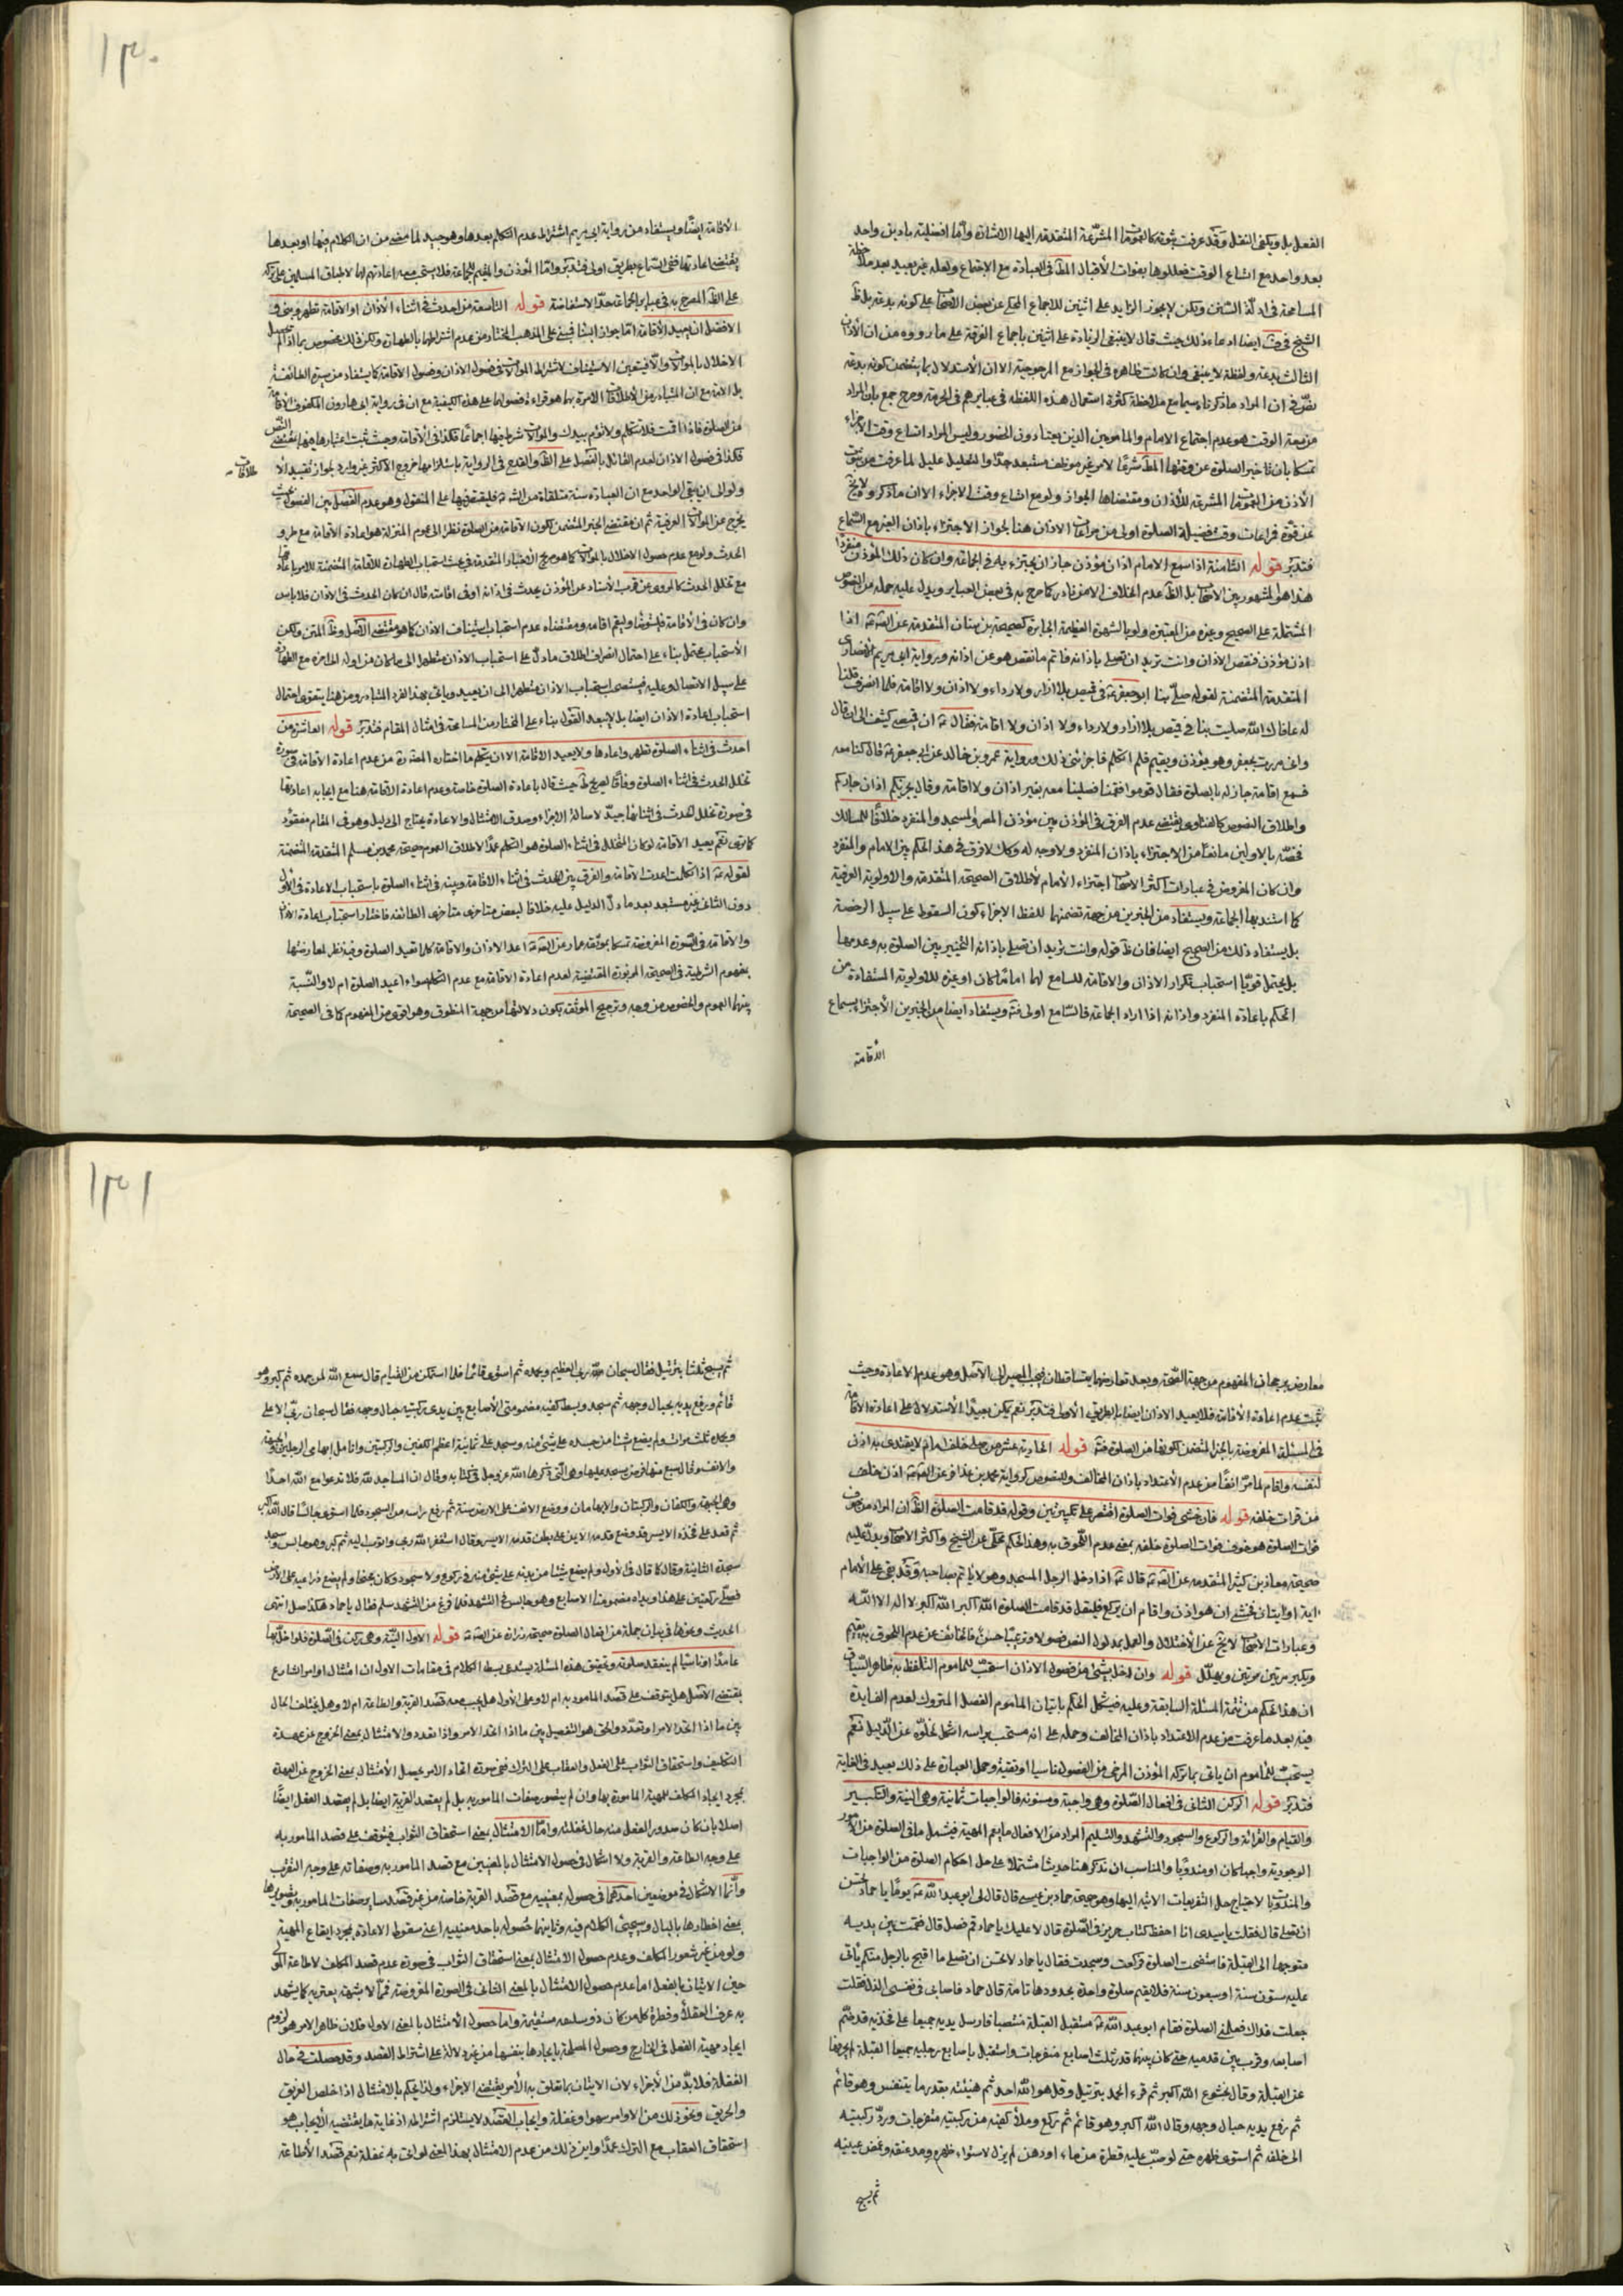 ١٣٠
الفعل بل ويكفي النقل وقد عرفت ثبوته كالعمومات المشرعة المتقدمة اليها الاشارة واما افضليته باذن واحد
بعد واحد مع اتساع الوقت فعللوها بفوات الاقبال المط في العبادة مع الاجتماع ولعله غير بعيد بعد ملاحظة
المسامحة في ادلة السنن ولكن لا يجوز الزايد على اثنين للاجماع المحكي عن بعض الاصحاب على كونه بدعة بل ظ
الشيخ في ف ايضا ادعاء ذلك حيث قال لا ينبغي الزيادة على اثنين باجماع الفرقة على ما رووه من ان الاذان
الثالث بدعة ولفظة لا ينبغي وان كانت ظاهرة في الجواز مع المرجوحية الا ان الاستدلال بما يتضمن كونه بدعة
في ان المراد ما ذكرناه سيما مع ملاحظة كثرة استعمال هذه اللفظة في عبايرهم في الحرمة وصرح جمع بان المراد
من سعة الوقت هو عدم اجتماع الامام والمامومين الذين يعتاد دون الحضور وليس المراد اتساع وقت الاجزاء
تمسكا بان تاخير الصلوة عن وقتها المط شرعا لامر غير موظف مستبعد جدا والتعليل عليل لما عرفت من ثبوت
الاذن من العمومات المشرعة للاذان ومقتضاها الجواز ولو مع اتساع وقت الاجزاء الا ان ما ذكر ولا يخ
عن قوة فمراعات وقت فضيلة الصلوة اولى من مراعات الاذان هنا لجواز الاجتزاء باذان الغير مع السماع
فتدبر قوله الثامنة اذا سمع الامام اذان مؤذن جاز ان يجتزء به في الجماعة وان كان ذلك المؤذن منفردا
هذا هو المشهور بين الاصحاب بل الظ عدم الخلاف الا من نادر كما صرح به في بعض العباير ويدل عليه جملة من النصوص
المشتملة على الصحيح وغيره من المعتبرة ولو بالشهرة العظيمة الجابرة كصحيحة بن سنان المتقدمة عن الصه ع اذا
اذن مؤذن فنقص الاذان وانت تريد ان تصلي باذانه فاتم ما نقص هو عن اذانه وبرواية ابي مريم الانصاري
المتقدمة المتضمنة لقوله صلى بنا ابو جعفر ع في قميص بلا ازار ولا رداء ولا اذان ولا اقامة فلما انصرف قلنا
له عافاك الله صليت بنا في قميص بلا ازار ولا رداء ولا اذان ولا اقامة فقال ع ان قميصي كثيف الى ان قال
واني مررت بجعفر وهو يؤذن ويقيم فلم اتكلم فاجزئني ذلك ورواية عمرو بن خالد عن ابي جعفر ع قال كنا معه
فسمع اقامة جار له بالصلوة فقال قوموا فقمنا فصلينا معه بغير اذان ولا اقامة وقال يجزئكم اذان جاركم
واطلاق النصوص كالفتاوى يقتضي عدم الفرق في المؤذن بين مؤذن المصر والمسجد والمنفرد خلافا للمسالك
فخصه بالاولين مانعا من الاجتزاء باذان المنفرد ولا وجه له وكك لا فرق في هذا الحكم بين الامام والمنفرد
وان كان المفروض في عبارات اكثر الاصحاب اجتزاء الامام لاطلاق الصحيحة المتقدمة والاولوية العرفية
كما استند بها الجماعة ويستفاد من الخبرين من جهة تضمنهما للفظ الاجزاء كون السقوط على سبيل الرخصة
بل يستفاد ذلك من الصحيح ايضا فان ظ قوله وانت تريد ان تصلي باذانه التخيير بين الصلوة به وعدمها
بل يحتمل قويا استحباب تكرار الاذان والاقامة للسامع لهما اماما كان او غيره للاولوية المستفادة من
الحكم باعادة المنفرد واذانه اذا اراد الجماعة فالسامع اولى فته ويستفاد ايضا من الخبرين الاجتزاء بسماع
الاقامة
الاقامة ايضا ويستفاد من رواية ابي مريم اشتراط عدم التكلم بعدها وهو جيد لما مضى من ان الكلام فيها او بعدها
يقتضي اعادتها ففي السماع بطريق اولى فتدبر واما المؤذن والمقيم للجماعة فلا يستحب معه اعادتهم لها لاطباق المسلمين على تركه
على الظ المصرح به في عباير الجماعة حد الاستفاضة قوله التاسعة من احدث في اثناء الاذان او الاقامة تطهر وبنى و
الافضل ان يعيد الاقامة اما جواز البناء فمبني على المذهب المختار من عدم اشتراطهما بالطهارة ولكن ذلك مخصوص بما اذا لم يحصل
الاخلال بالموالات والا فيتعين الاستيناف لاشتراط الموالات في فصول الاذان وفصول الاقامة كما يستفاد من سيرة الطائفة
بل الامة مع ان المتبادر من الاطلاقات الامرة بهما هو قراءة فصولهما على هذه الكيفية مع ان في رواية ابي هارون المكفوف الاقامة
من الصلوة فاذا اقمت فلا تتكلم ولا تؤم بيدك والموالات شرط فيها اجماعا فكذا في الاقامة وحيث ثبت اعتبارها فيها بمقتضى النص
فكذا في فصول الاذان لعدم القائل بالفصل على الظ والقدح في الرواية باستلزامها خروج الاكثر غير وارد لجواز تقييد الا
طلاقات
ولو الى ان يبقى الواحد مع ان العبادة سنة متلقاة من الش ع فليقتصر فيها على المنقول وهو عدم الفصل بين الفصول بحيث
يخرج عن الموالات العرفية ثم ان مقتضى الخبر المتضمن لكون الاقامة من الصلوة نظرا الى عموم المنزلة هو اعادة الاقامة مع طرو
الحدث ولو مع عدم حصول الاخلال بالموالات كما هو صريح الاخبار المتقدمة في بحث استحباب الطهارة للاقامة المتضمنة للامر باعادتها
مع تخلل الحدث كالمروي عن قرب الاسناد عن المؤذن يحدث في اذانه او في اقامته قال ان كان الحدث في الاذان فلا باس
وان كان في الاقامة فليتوضا وليقم اقامة ومقتضاه عدم استحباب استيناف الاذان كما هو مقتضى الاصل وظ المتن ولكن
الاستحباب محتمل بناء على احتمال انصراف اطلاق ما دل على استحباب الاذان متطهرا الى ما كان من اوله الى اخره مع الطهارة
على سبيل الاتصال وعليه فيستصحب استحباب الاذان متطهرا الى ان يعيد وياتي بهذا الفرد المتبادر ومن هنا يتقوى احتمال
استحباب اعادة الاذان ايضا بل لا يبعد القول بناء على المختار من المسامحة في امثال المقام فتدبر قوله العاشرة من
احدث في اثناء الصلوة تطهر واعادها ولا يعيد الاقامة الا ان يتكلم ما اختاره المص ره من عدم اعادة الاقامة في صورة
تخلل الحدث في اثناء الصلوة وفاقا لصريح ط حيث قال باعادة الصلوة خاصة وعدم اعادة الاقامة هنا مع ايجابه اعادتها
في صورة تخلل الحدث في اثنائها جيد لاصالة الاجزاء وصدق الامتثال والاعادة يحتاج الى دليل وهو في المقام مفقود
كما ترى نعم يعيد الاقامة لو كان المتخلل في اثناء الصلوة هو التكلم عمدا لاطلاق العموم صحيحة محمد بن مسلم المتقدمة المتضمنة
لقوله ع اذا تكلمت اعدت الاقامة والفرق بين الحدث في اثناء الاقامة وبينه في اثناء الصلوة باستحباب الاعادة في الاول
دون الثاني غير مستبعد بعد ما دل الدليل عليه خلافا لبعض متاخري متاخري الطائفة فاختار استحباب اعادة الاذان
والاقامة في الصورة المفروضة تمسكا بموثقة عمار عن الصه ع اعد الاذان والاقامة كلما تعيد الصلوة وفيه نظر لمعارضتها
بمفهوم الشرطية في الصحيحة المزبورة المقتضية لعدم اعادة الاقامة مع عدم التكلم سواء اعيد الصلوة ام لا والنسبة
بينهما العموم والخصوص من وجه وترجيح الموثق بكون دلالتها من جهة المنطوق وهو اقوى من المفهوم كما في الصحيحة
١٣١
معارض برجحان المفهوم من جهة الصحة وبعد تعارضهما يتساقطان فيجب المصير الى الاصل وهو عدم الاعادة وحيث
ثبت عدم اعادة الاقامة فلا يعيد الاذان ايضا بالطريق الاولى فتدبر نعم يمكن بعيدا الاستدلال على اعادة الاقامة
في المسئلة المفروضة بالخبر المتضمن لكونها من الصلوة فته قوله الحادية عشر من صلى خلف امام لا يقتدى به اذن
لنفسه واقام لما مر انفا من عدم الاعتداد باذان المخالف وللنصوص كرواية محمد بن عذافر عن الصه ع اذن خلف
من قرات خلفه قوله فان خشي فوات الصلوة اقتصر على تكبيرتين وقوله قد قامت الصلوة الظ ان المراد من خوف
فوات الصلوة هو خوف فوات الصلوة خلفه بمعنى عدم اللحوق به وهذا الحكم محكي عن الشيخ واكثر الاصحاب ويدل عليه
صحيحة معاذ بن كثير المتقدمة عن الصه ع قال ع اذا دخل الرجل المسجد وهو لا ياتم بصاحبه وقد بقي على الامام
اية او ايتان فخشي ان هو اذن واقام ان يركع فليقل قد قامت الصلوة الله اكبر الله اكبر لا اله الا الله
وعبارات الاصحاب لا يخ عن الاختلال والعمل بمدلول النص فصولا وترتيبا حسن فالخائف عن عدم اللحوق به يقيم
ويكبر مرتين مرتين ويهلل قوله وان اخل بشئ من فصول الاذان استحب للماموم التلفظ به ظاهر السياق
ان هذا الحكم من تتمة المسئلة السابقة وعليه فيشكل الحكم باتيان الماموم الفصل المتروك لعدم الفايدة
فيه بعد ما عرفت من عدم الاعتداد باذان المخالف وحمله على انه مستحب براسه اشكل لخلوه عن الدليل نعم
يستحب للماموم ان ياتي بما تركه المؤذن المرضي من الفصول ناسيا او تقية وحمل العبارة على ذلك بعيد في الغاية
فتدبر قوله الركن الثاني في افعال الصلوة وهي واجبة ومسنونة فالواجبات ثمانية وهي النية والتكبير
والقيام والقرائة والركوع والسجود والتشهد والتسليم المراد من الافعال ما يعم المهية فيشمل ما في الصلوة من الامور
الوجودية واجبا كان او مندوبا والمناسب ان نذكر هنا حديثا مشتملا على جل احكام الصلوة من الواجبات
والمندوبات لاحتياج جل التفريعات الاتية اليها وهو صحيحة حماد بن عيسى قال قال لي ابو عبد الله ع يوما يا حماد تحسن
ان تصلي قال فقلت يا سيدي انا احفظ كتاب حريز في الصلوة قال لا عليك يا حماد قم فصل قال فقمت بين يديه
متوجها الى القبلة فاستفتحت الصلوة فركعت وسجدت فقال يا حماد لا تحسن ان تصلي ما اقبح بالرجل منكم ياتي
عليه ستون سنة او سبعون سنة فلا يقيم صلوة واحدة بحدودها تامة قال حماد فاصابني في نفسي الذل فقلت
جعلت فداك فعلمني الصلوة فقام ابو عبد الله ع مستقبل القبلة منتصبا فارسل يديه جميعا على فخذيه قد ضم
اصابعه وقرب بين قدميه حتى كان بينهما قدر ثلث اصابع منفرجات واستقبل باصابع رجليه جميعا القبلة لم يحرفها
عن القبلة وقال بخشوع الله اكبر ثم قرء الحمد بترتيل وقل هو الله احد ثم هنيئة بقدر ما يتنفس وهو قائم
ثم رفع يديه حيال وجهه وقال الله اكبر وهو قائم ثم ركع وملا كفيه من ركبتيه منفرجات ورد ركبتيه
الى خلفه ثم استوى ظهره حتى لو صب عليه قطرة من ماء او دهن لم يزل لاستواء ظهره ومد عنقه وغمض عينيه
ثم سبح
ثم سبح ثلثا بترتيل فقال سبحان ربي العظيم وبحمده ثم استوى قائما فلما استمكن من القيام قال سمع الله لمن حمده ثم كبر وهو
قائم ورفع يديه بحيال وجهه ثم سجد وبسط كفيه مضمومتي الاصابع بين يدي ركبتيه حيال وجهه فقال سبحان ربي الاعلى
وبحمده ثلث مرات ولم يضع شيئا من جسده على شئ منه وسجد على ثمانية اعظم الكفين والركبتين وانامل ابهامي الرجلين والجبهة
والانف وقال سبع منها فرض يسجد عليها وهي التي ذكرها الله عز وجل في كتابه وقال ان المساجد لله فلا تدعوا مع الله احدا
وهي الجبهة والكفان والركبتان والابهامان ووضع الانف على الارض سنة ثم رفع راسه من السجود فلما استوى جالسا قال الله اكبر
ثم قعد على فخذه الايسر قد وضع قدمه الايمن على بطن قدمه الايسر وقال استغفر الله ربي واتوب اليه ثم كبر وهو جالس وسجد
سجدة الثانية وقال كما قال في الاولى ولم يضع شيئا من بدنه على شئ منه في ركوع ولا سجود وكان مجنحا ولم يضع ذراعيه على الارض
فصلى ركعتين على هذا ويداه مضمومتا الاصابع وهو جالس في التشهد فلما فرغ من التشهد سلم فقال يا حماد هكذا صل انتهى
الحديث ونحوها في بيان جملة من افعال الصلوة صحيحة زرارة عن الصه ع قوله الاول النية وهي ركن في الصلوة فلو اخل بها
عامدا او ناسيا لم ينعقد صلوته وتحقيق هذه المسئلة يستدعي بسط الكلام في مقامات الاول ان امتثال اوامر الشارع
بمقتضى الاصل هل يتوقف على قصد المامور به ام لا وعلى الاول هل يجب معه قصد القربة والطاعة ام لا وهل يختلف الحال
بين ما اذا اتحد الامر او تعدد والحق هو التفصيل بين ما اذا اتحد الامر واذا تعدد والامتثال بمعنى الخروج عن عهدة
التكليف واستحقاق الثواب على الفعل والعقاب على الترك ففي صورة اتحاد الامر يحصل الامتثال بمعنى الخروج عن العهدة
بمجرد ايجاد المكلف للمهية المامورة بها وان لم يتصور صفات المامور به بل لم يقصد القربة ايضا بل لم يقصد الفعل ايضا
اصلا بان كان صدور الفعل منه حال غفلته واما الامتثال بمعنى استحقاق الثواب فيتوقف على قصد المامور به
على وجه الطاعة والقربة ولا اشكال في حصول الامتثال بالمعنيين مع قصد المامور به وصفاته على وجه التقرب
وانما الاشكال في موضعين احدهما في حصوله بمعنييه مع قصد القربة خاصة من غير قصد ساير صفات المامور به وتصورها
بمعنى اخطارها بالبال وسيجئ الكلام فيه وثانيهما حصوله باحد معنييه اعني سقوط الاعادة بمجرد ايقاع المهية
ولو من غير شعور المكلف وعدم حصول الامتثال بمعنى استحقاق الثواب في صورة عدم قصد المكلف لاطاعة المولى
حين الاتيان بالفعل اما عدم حصول الامتثال بالمعنى الثاني في الصورة المفروضة فمما لا شبهة يعتريه كما يشهد
به عرف العقلاء وفطرة كل من كان ذو سليقة مستقيمة واما حصول الامتثال بالمعنى الاول فلان ظاهر الامر هو لزوم
ايجاد مهية الفعل في الخارج وحصول المصلحة بايجادها بنفسها من غير دلالة على اشتراط القصد وقد حصلت في حال
الغفلة فلا بد من الاجزاء لان الاتيان بما تعلق به الامر يقتضي الاجزاء ولذا يحكم بالامتثال اذا خلص الغريق
والحريق ونحو ذلك من الاوامر سهوا وغفلة وايجاب القصد لا يستلزم اشتراطه اذ غاية ما يقتضيه الايجاب هو
استحقاق العقاب مع الترك عمدا واين ذلك من عدم الامتثال بهذا المعنى لو اتى به غفلة نعم قصد الاطاعة